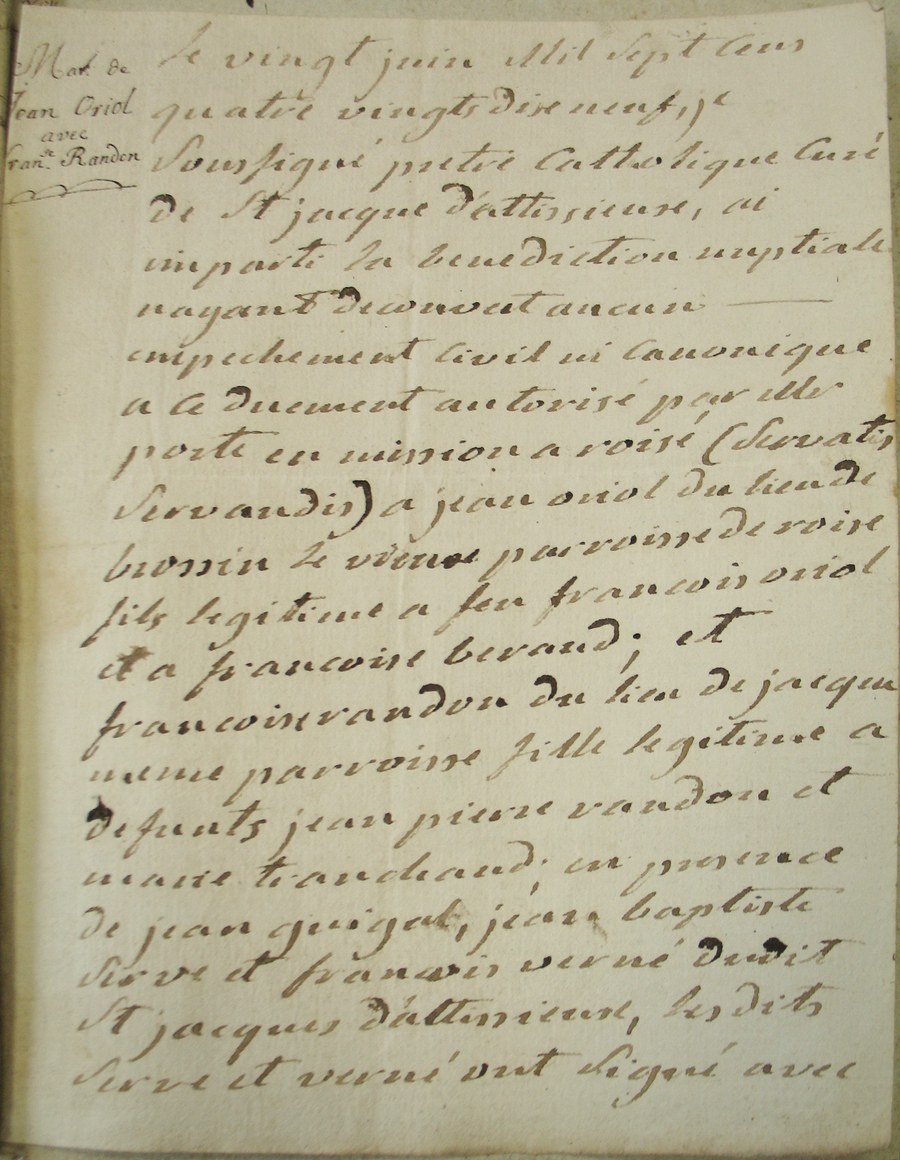 Mar. de
Jean Oriol
avec
Fran.se Randon
le vingt juin Mil Sept Cens
quatre vingts dise neuf, je
Soussigné pretre Catholique Curé
de St jacque d'attissieuse, ai
imparti la benediction nuptiale
nayant decouvat aucun
empechement Civil ni Canonique
a ce duement autorisé par Mr
porte en mission a roisé (Servatis
Servandis) a jean oriol du lieu de
brossin le vieux parroisse de roise
fils legitime a feu francois oriol
et a francoise beraud; et
francoise randon du lieu de jacquu
meme parroisse fille legitime a
defunts jean pierre randon et
marie tranchand; en presence
de jean guigal, jean baptiste
Serve et francois verné dudit
St jacques d'attissieuse, lesdits
Serve et verné ont Signé avec